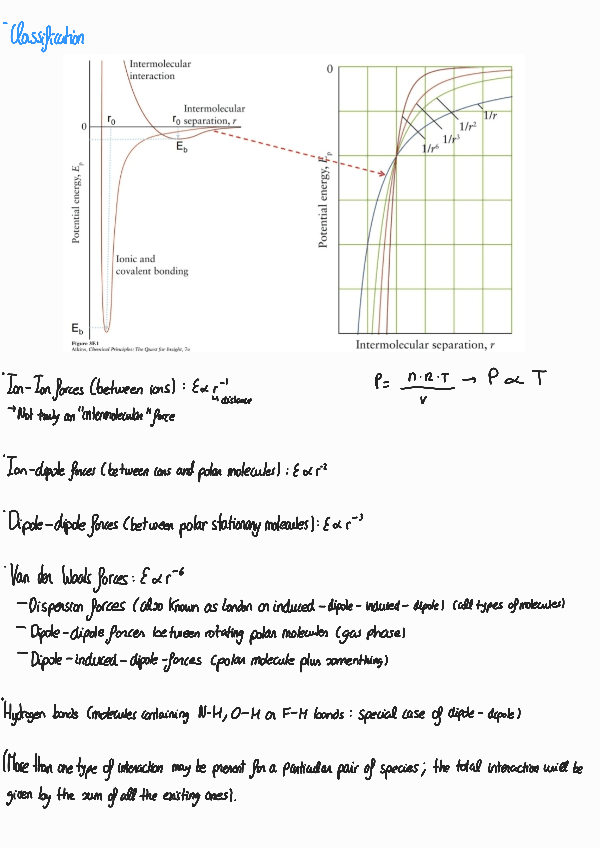 - Classification
Intermolecular
interaction
0
r0
r0
Intermolecular
separation, r
Eb
Potential energy, Ep
Ionic and
covalent bonding
Eb
Figure 3F.1
Atkins, Chemical Principles: The Quest for Insight, 7e
0
1/r
1/r²
1/r³
1/r⁶
Potential energy, Ep
Intermolecular separation, r
· Ion-Ion forces (between ions) : ε ∝ r⁻¹
↳ distance
→ Not truly an "intermolecular" force
P = n·R·T / V → P ∝ T
· Ion-dipole forces (between ions and polar molecules) : ε ∝ r⁻²
· Dipole-dipole forces (between polar stationary molecules) : ε ∝ r⁻³
· Van der Waals forces : ε ∝ r⁻⁶
- Dispersion forces (also known as London or induced-dipole-induced-dipole) (all types of molecules)
- Dipole-dipole forces between rotating polar molecules (gas phase)
- Dipole-induced-dipole-forces (polar molecule plus somenthing)
· Hydrogen bonds (molecules containing N-H, O-H or F-H bonds : special case of dipole-dipole)
(More than one type of interaction may be present for a particular pair of species; the total interaction will be
given by the sum of all the existing ones).